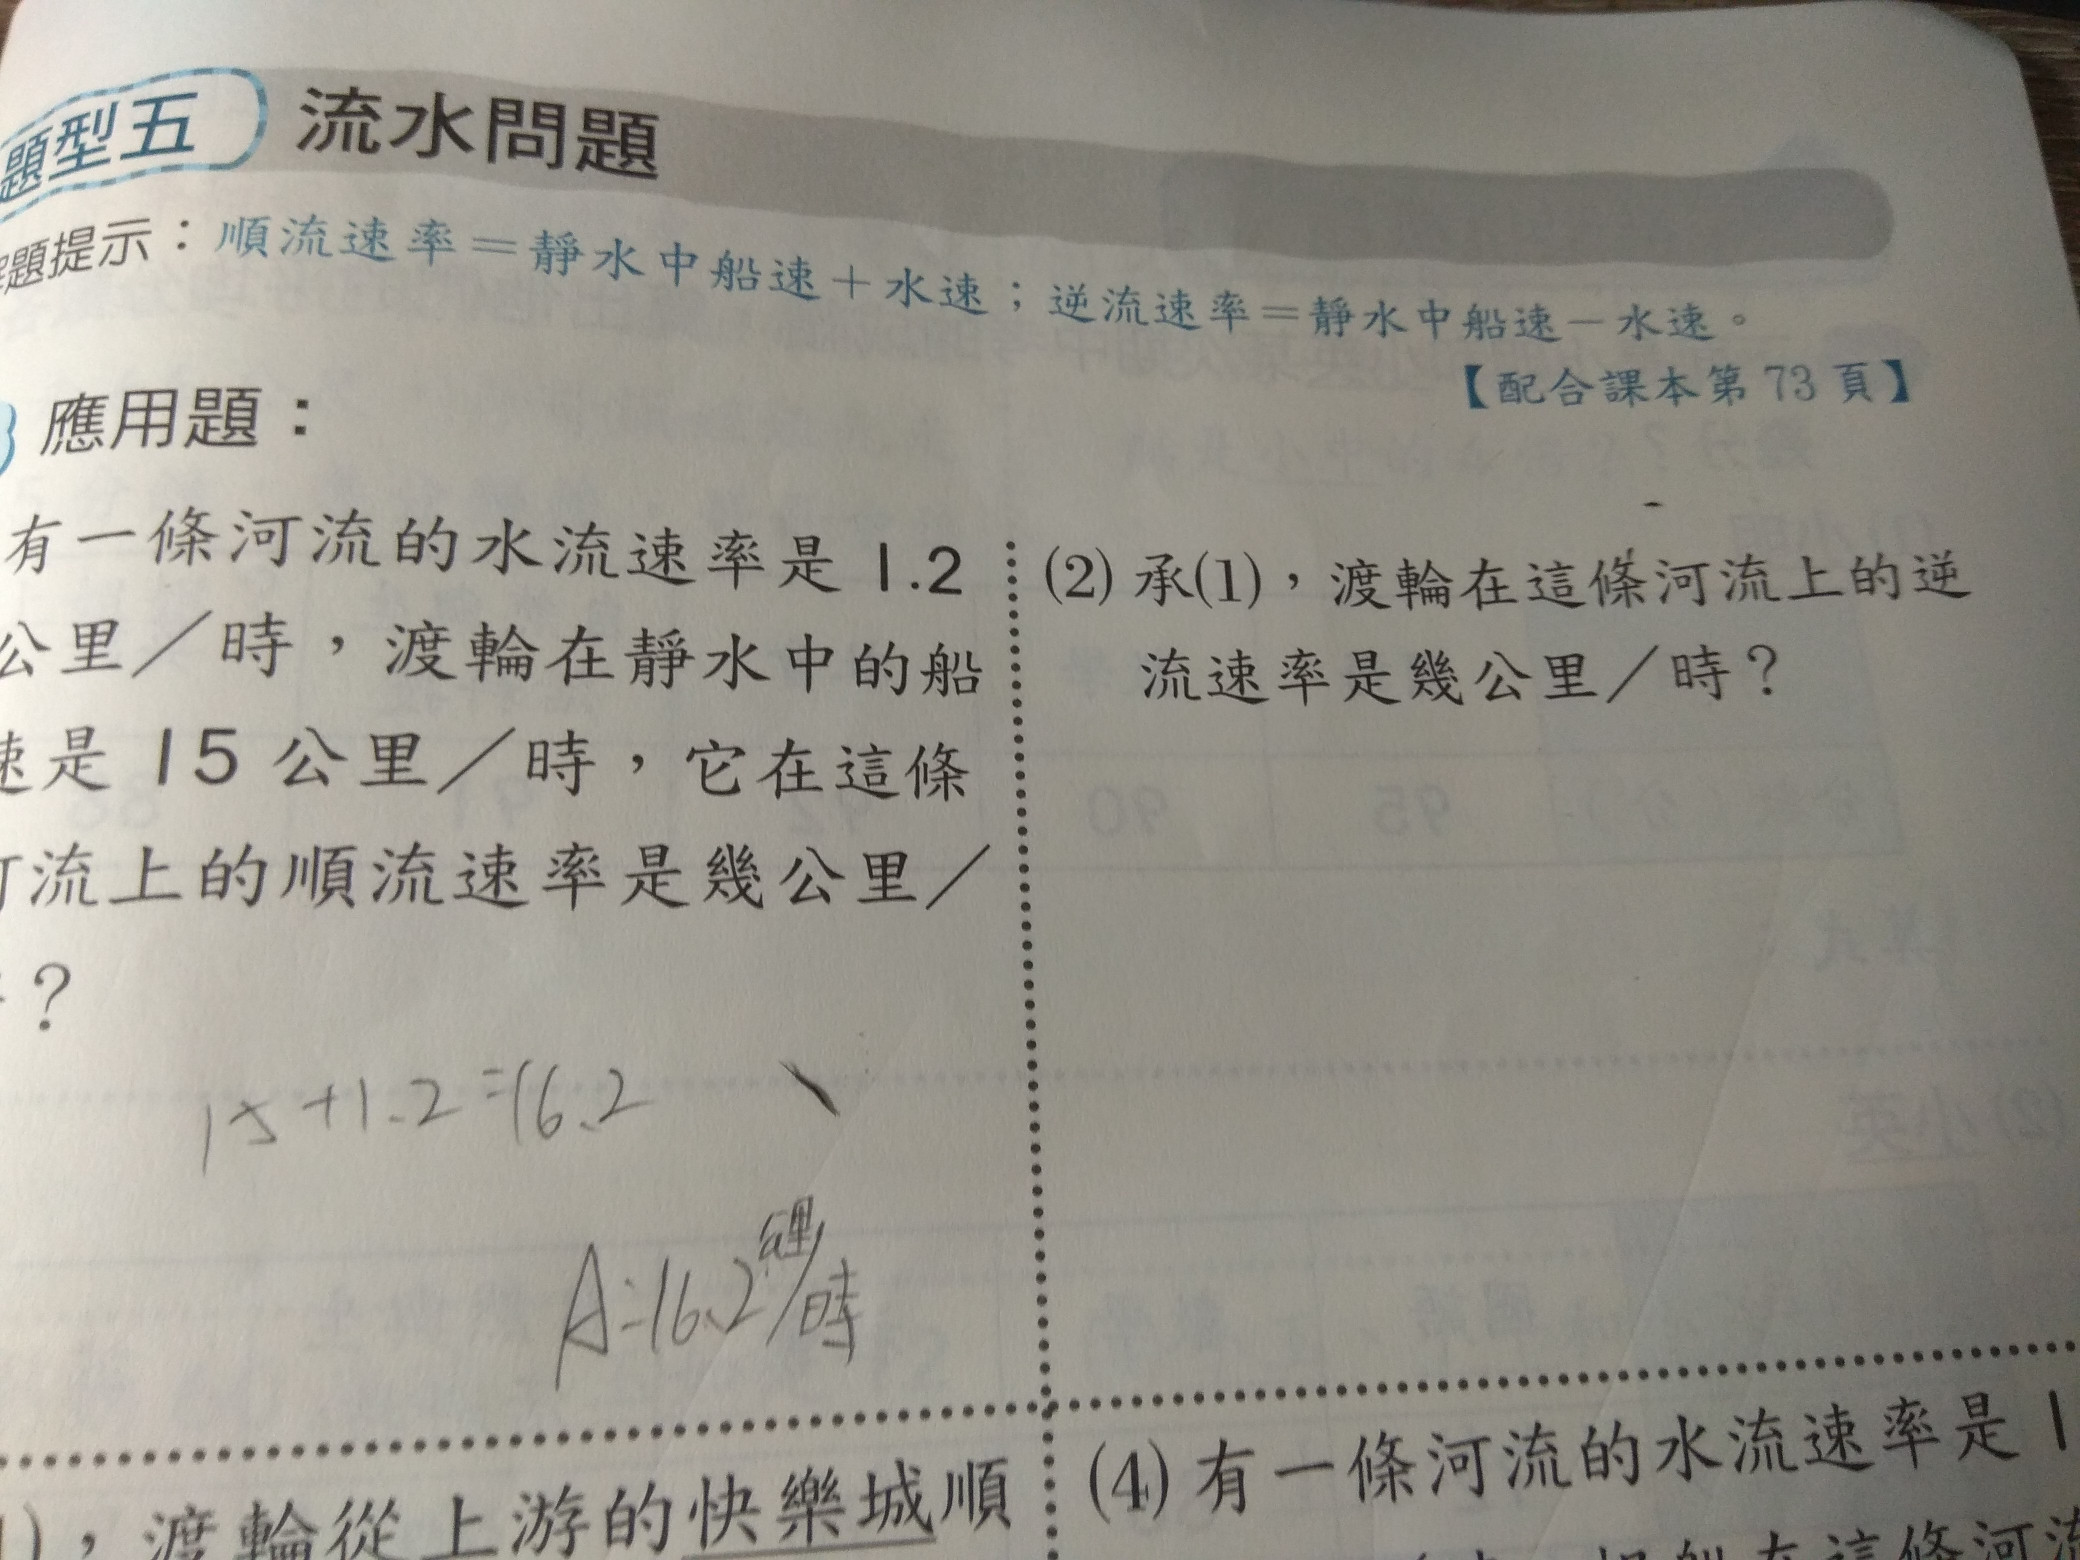 題型五 流水問題
解題提示：順流速率＝靜水中船速＋水速；逆流速率＝靜水中船速－水速。
【配合課本第 73 頁】
應用題：
有一條河流的水流速率是 1.2
公里／時，渡輪在靜水中的船
速是 15 公里／時，它在這條
河流上的順流速率是幾公里／
？
15+1.2=16.2
A:16.2公里/時
(2) 承(1)，渡輪在這條河流上的逆
流速率是幾公里／時？
1)，渡輪從上游的快樂城順
(4) 有一條河流的水流速率是 1
在這條河流